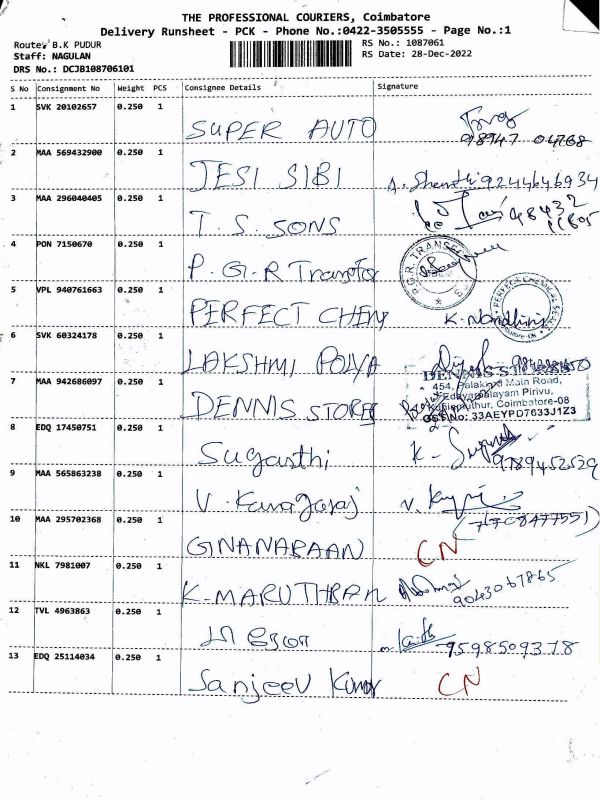 THE PROFESSIONAL COURIERS, Coimbatore
Delivery Runsheet - PCK - Phone No.:0422-3505555 - Page No.:1
Route: B.K PUDUR
RS No.: 1087061
Staff: NAGULAN
RS Date: 28-Dec-2022
DRS No.: DCJB108706101
S No Consignment No Weight PCS Consignee Details Signature
1 SVK 20102657 0.250 1
SUPER AUTO
98947 04768
2 MAA 569432900 0.250 1
JESI SIBI A. Shanthi 9244646934
3 MAA 296040405 0.250 1
T. S. SONS 98432
11805
4 PON 7150670 0.250 1
P.G.R Transfor P.G.R. TRANS
5 VPL 940761663 0.250 1
PERFECT CHEM K. Nandhini
6 SVK 60324178 0.250 1
LAKSHMI POLYA
7 MAA 942686097 0.250 1
DENNIS STORES
DENNIS STORES
454, Palakkad Main Road,
Edayarpalayam Pirivu,
Kuniamuthur, Coimbatore-08
GST No: 33AEYPD7633J1Z3
8 EDQ 17450751 0.250 1
Suganthi K-
9789452529
9 MAA 565863238 0.250 1
V. Kanagaraj V.
(7708477551)
10 MAA 295702368 0.250 1
GNANAPAAN CN
11 NKL 7981007 0.250 1
K. MARUTHPAN 9043067865
12 TVL 4963863 0.250 1
9598509378
13 EDQ 25114034 0.250 1
Sanjeev Kumar CN